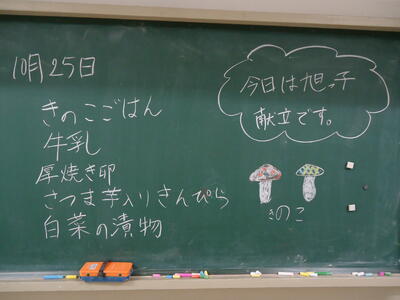 10月25日
きのこごはん
牛乳
厚焼き卵
さつま芋入りきんぴら
白菜の漬物
今日は旭っ子
献立です。
きのこ